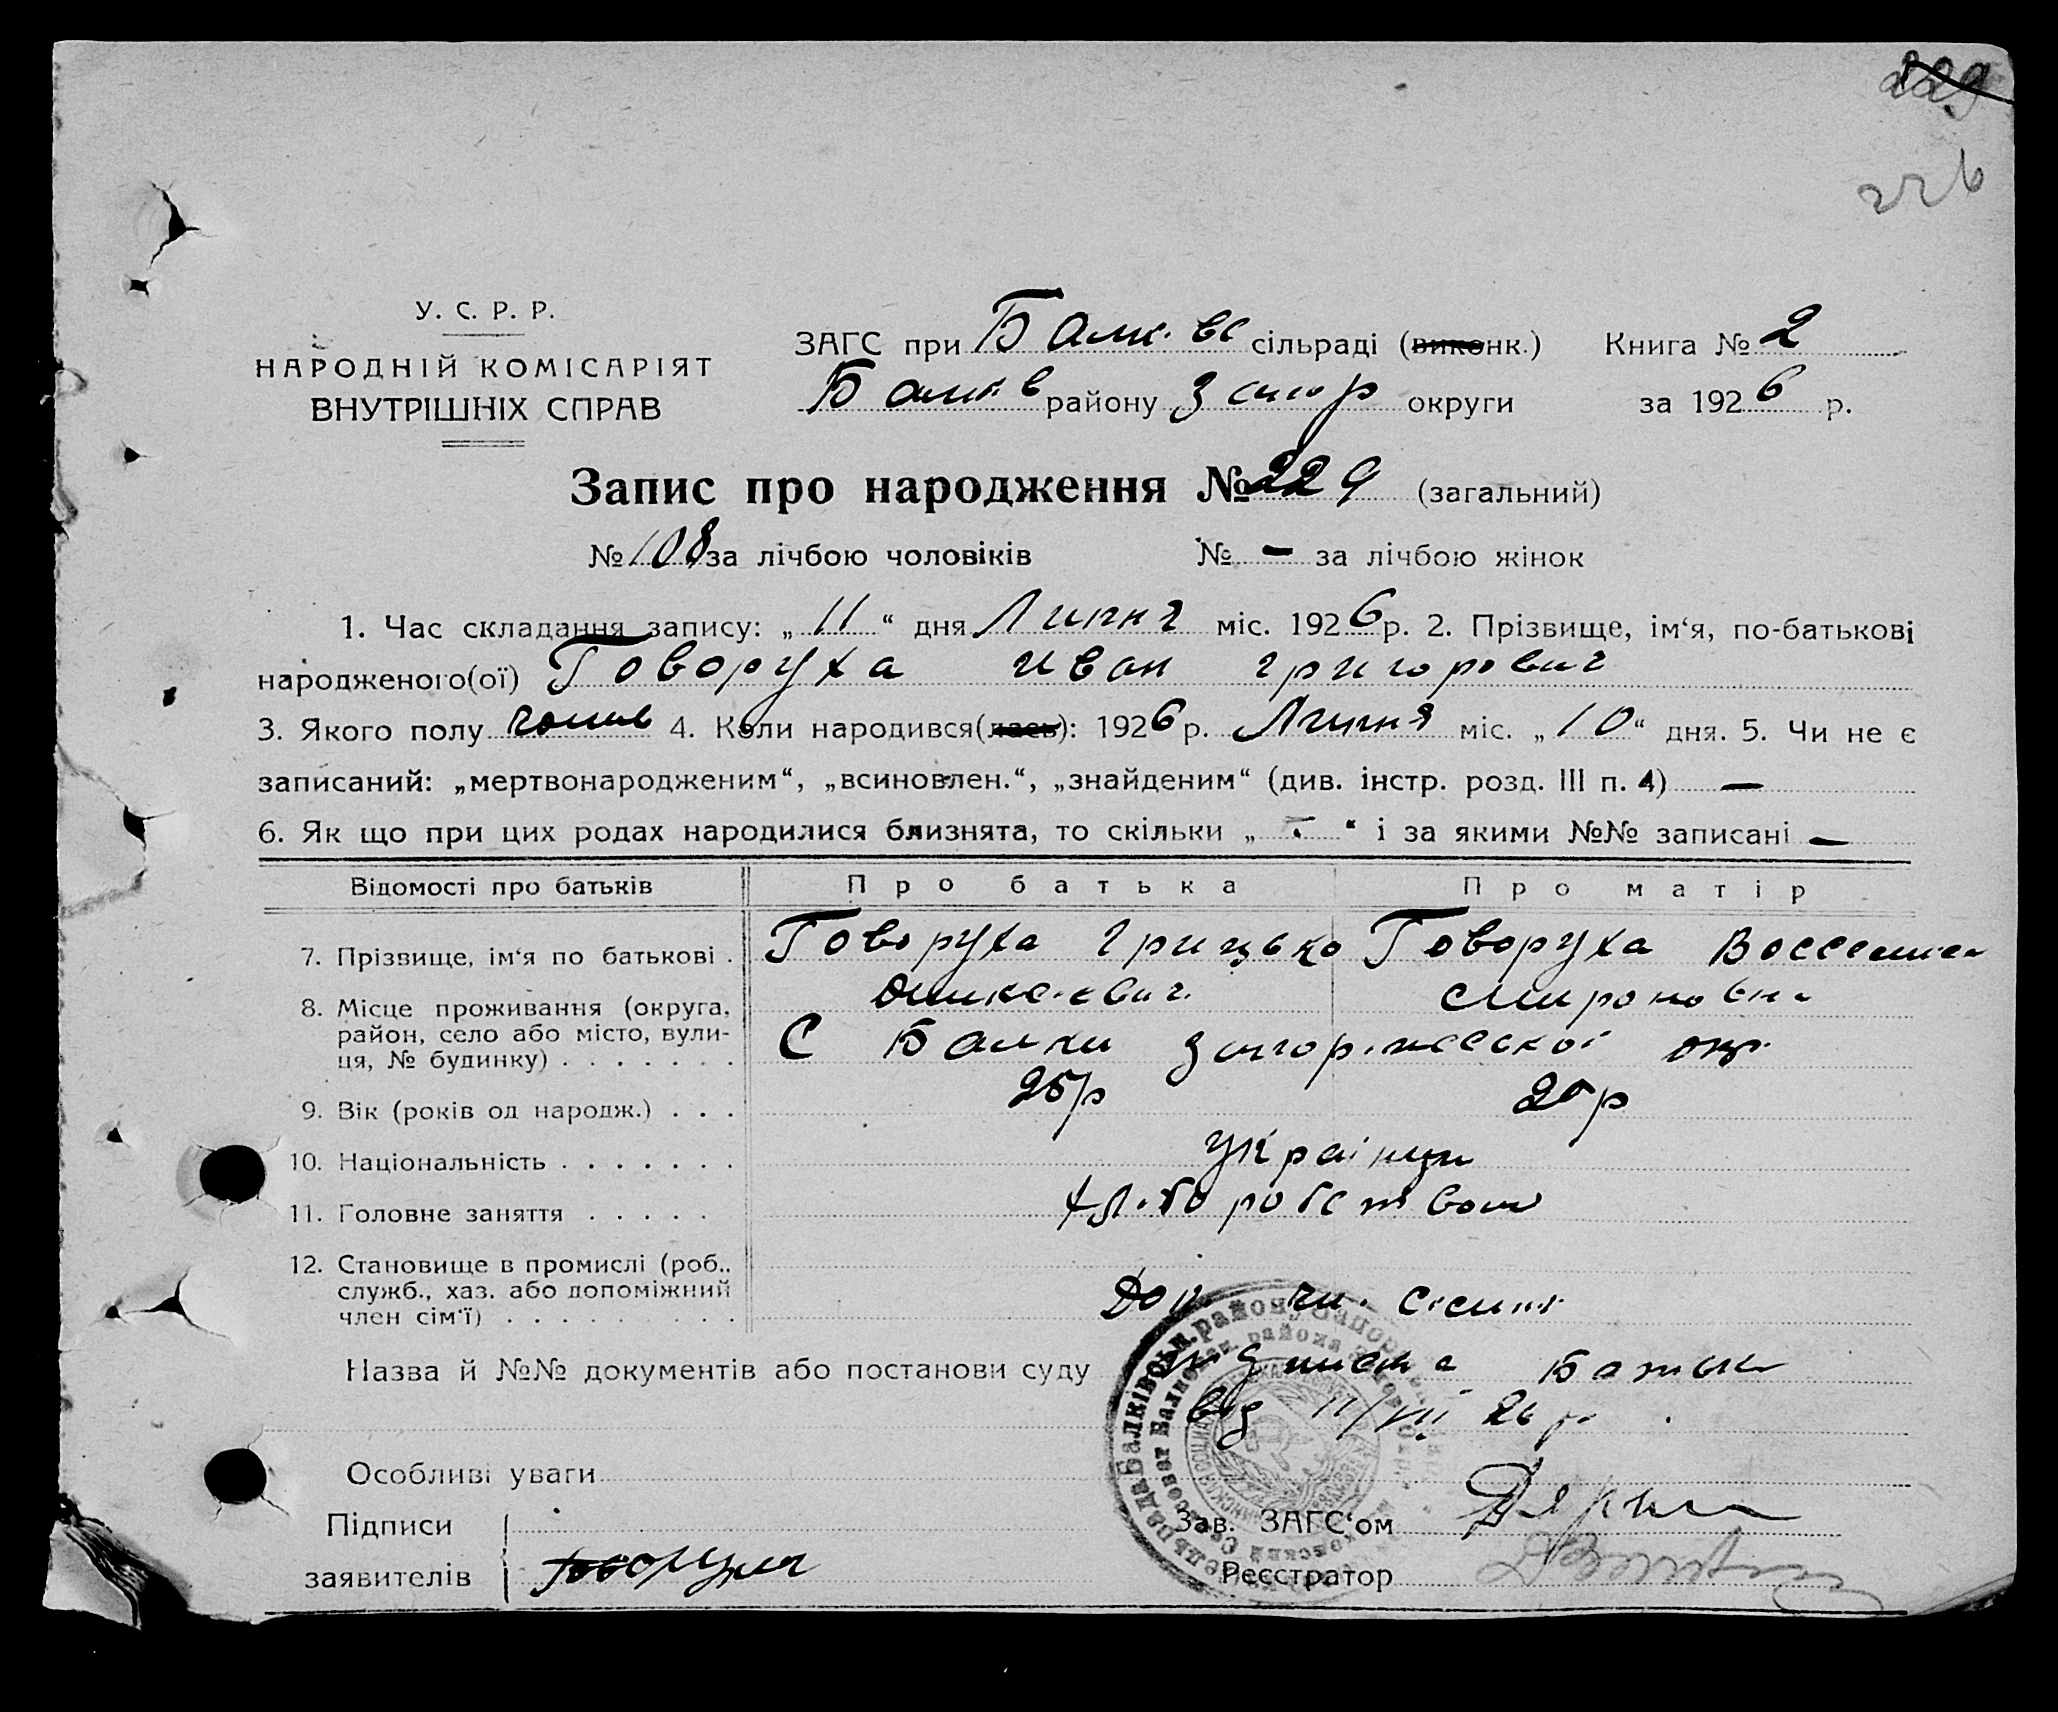 229
226
У. С. Р. Р.
НАРОДНІЙ КОМІСАРІЯТ
ВНУТРІШНІХ СПРАВ
ЗАГС при Балк. вс сільраді (виконк.) Книга № 2
Балків району Запор округи за 1926 р.
Запис про народження № 229 (загальний)
№ 108 за лічбою чоловіків № — за лічбою жінок
1. Час складання запису: „ 11 “ дня Липня міс. 1926 р. 2. Прізвище, ім‘я, по-батькові
народженого(ої) Говоруха Иван Григорович
3. Якого полу чолов 4. Коли народився(лась): 1926 р. Липня міс. „ 10 “ дня. 5. Чи не є
записаний: „мертвонародженим“, „всиновлен.“, „знайденим“ (див. інстр. розд. III п. 4) —
6. Як що при цих родах народилися близнята, то скільки „ - “ і за якими №№ записані —
Відомості про батьків Про батька Про матір
7. Прізвище, ім‘я по батькові . Говоруха Грицько Говоруха
Мироновна
8. Місце проживання (округа,
район, село або місто, вули-
ця, № будинку) . . . . . . . С Балки Запоріжської окр.
9. Вік (років од народж.) . . . 25 р 20 р
10. Національність . . . . . . . українци
11. Головне заняття . . . . . хліборобством
12. Становище в промислі (роб.,
служб., хаз. або допоміжний
член сім‘ї) . . . . . . . . . Доп. чл. сем
Назва й №№ документів або постанови суду Батька
від 11/VII 26 р.
Особливі уваги
Підписи
заявителів Говоруха
Зав. ЗАГС‘ом
Реєстратор